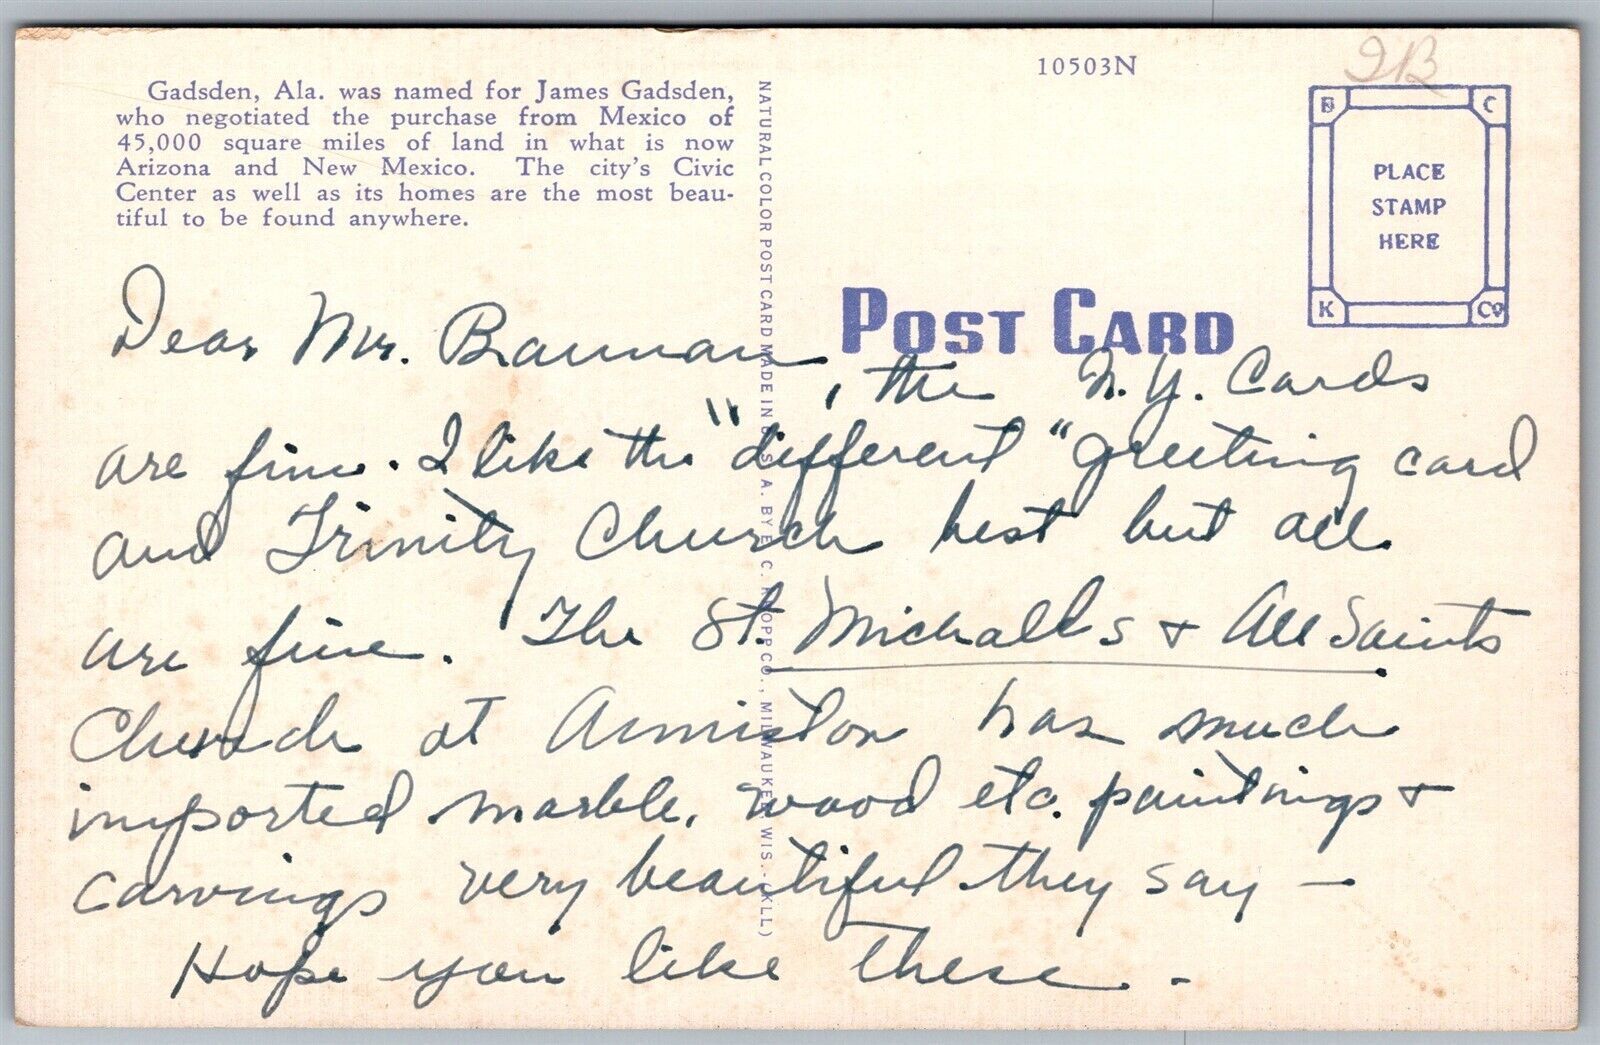 10503N
Gadsden, Ala. was named for James Gadsden,
who negotiated the purchase from Mexico of
45,000 square miles of land in what is now
Arizona and New Mexico. The city's Civic
Center as well as its homes are the most beau-
tiful to be found anywhere.
NATURAL COLOR POST CARD MADE IN U. S. A. BY E. C. KROPP CO., MILWAUKEE, WIS. - (KLL)
B C
PLACE
STAMP
HERE
K Co
POST CARD
Dear Mr. Bauman, the N.Y. Cards
are fine. I like the "different" greeting card
and Trinity Church best but all
are fine. The St. Michalls + All Saints
Church at Anniston has much
imported marble, wood etc. paintings +
carvings very beautiful they say —
Hope you like these. -